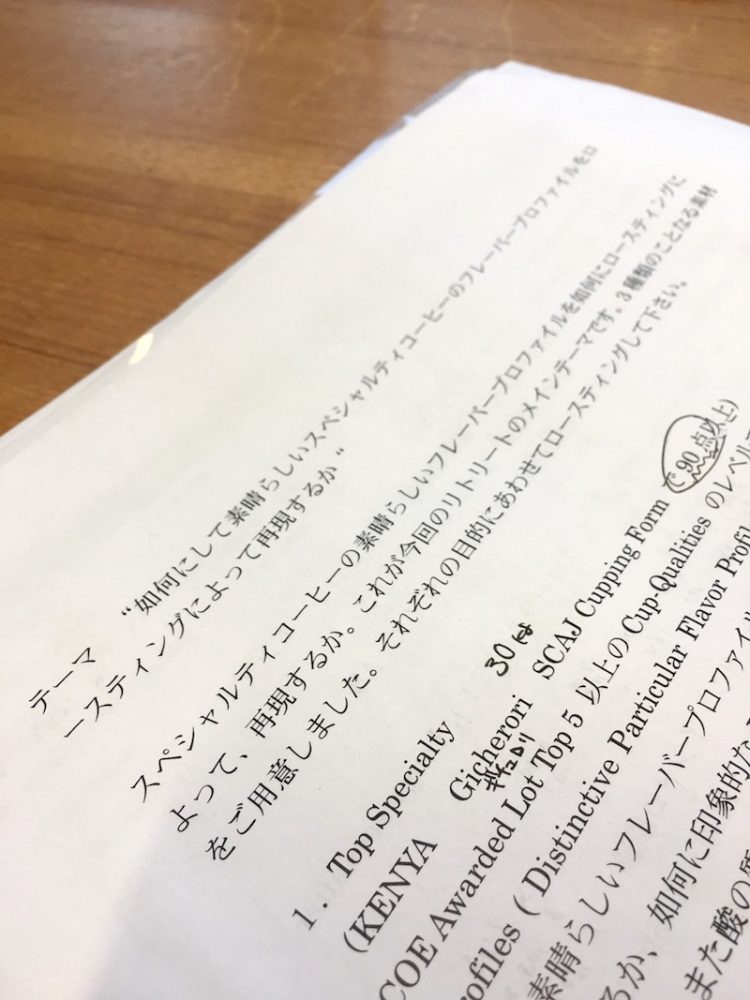 テーマ　“如何にして素晴らしいスペシャルティコーヒーのフレーバープロファイルをロ
ースティングによって再現するか“
スペシャルティコーヒーの素晴らしいフレーバープロファイルを如何にロースティングに
よって、再現するか。これが今回のリトリートのメインテーマです。3種類のことなる素材
をご用意しました。それぞれの目的にあわせてロースティングして下さい。
30kg
1．Top Specialty
(KENYA Gicherori SCAJ Cupping Form で90点以上)
ギチェロリ
COE Awarded Lot Top 5 以上の Cup-Qualities のレベル
rofiles ( Distinctive Particular Flavor Profil
素晴らしいフレーバープロファイル
るか、如何に印象的な
また酸の